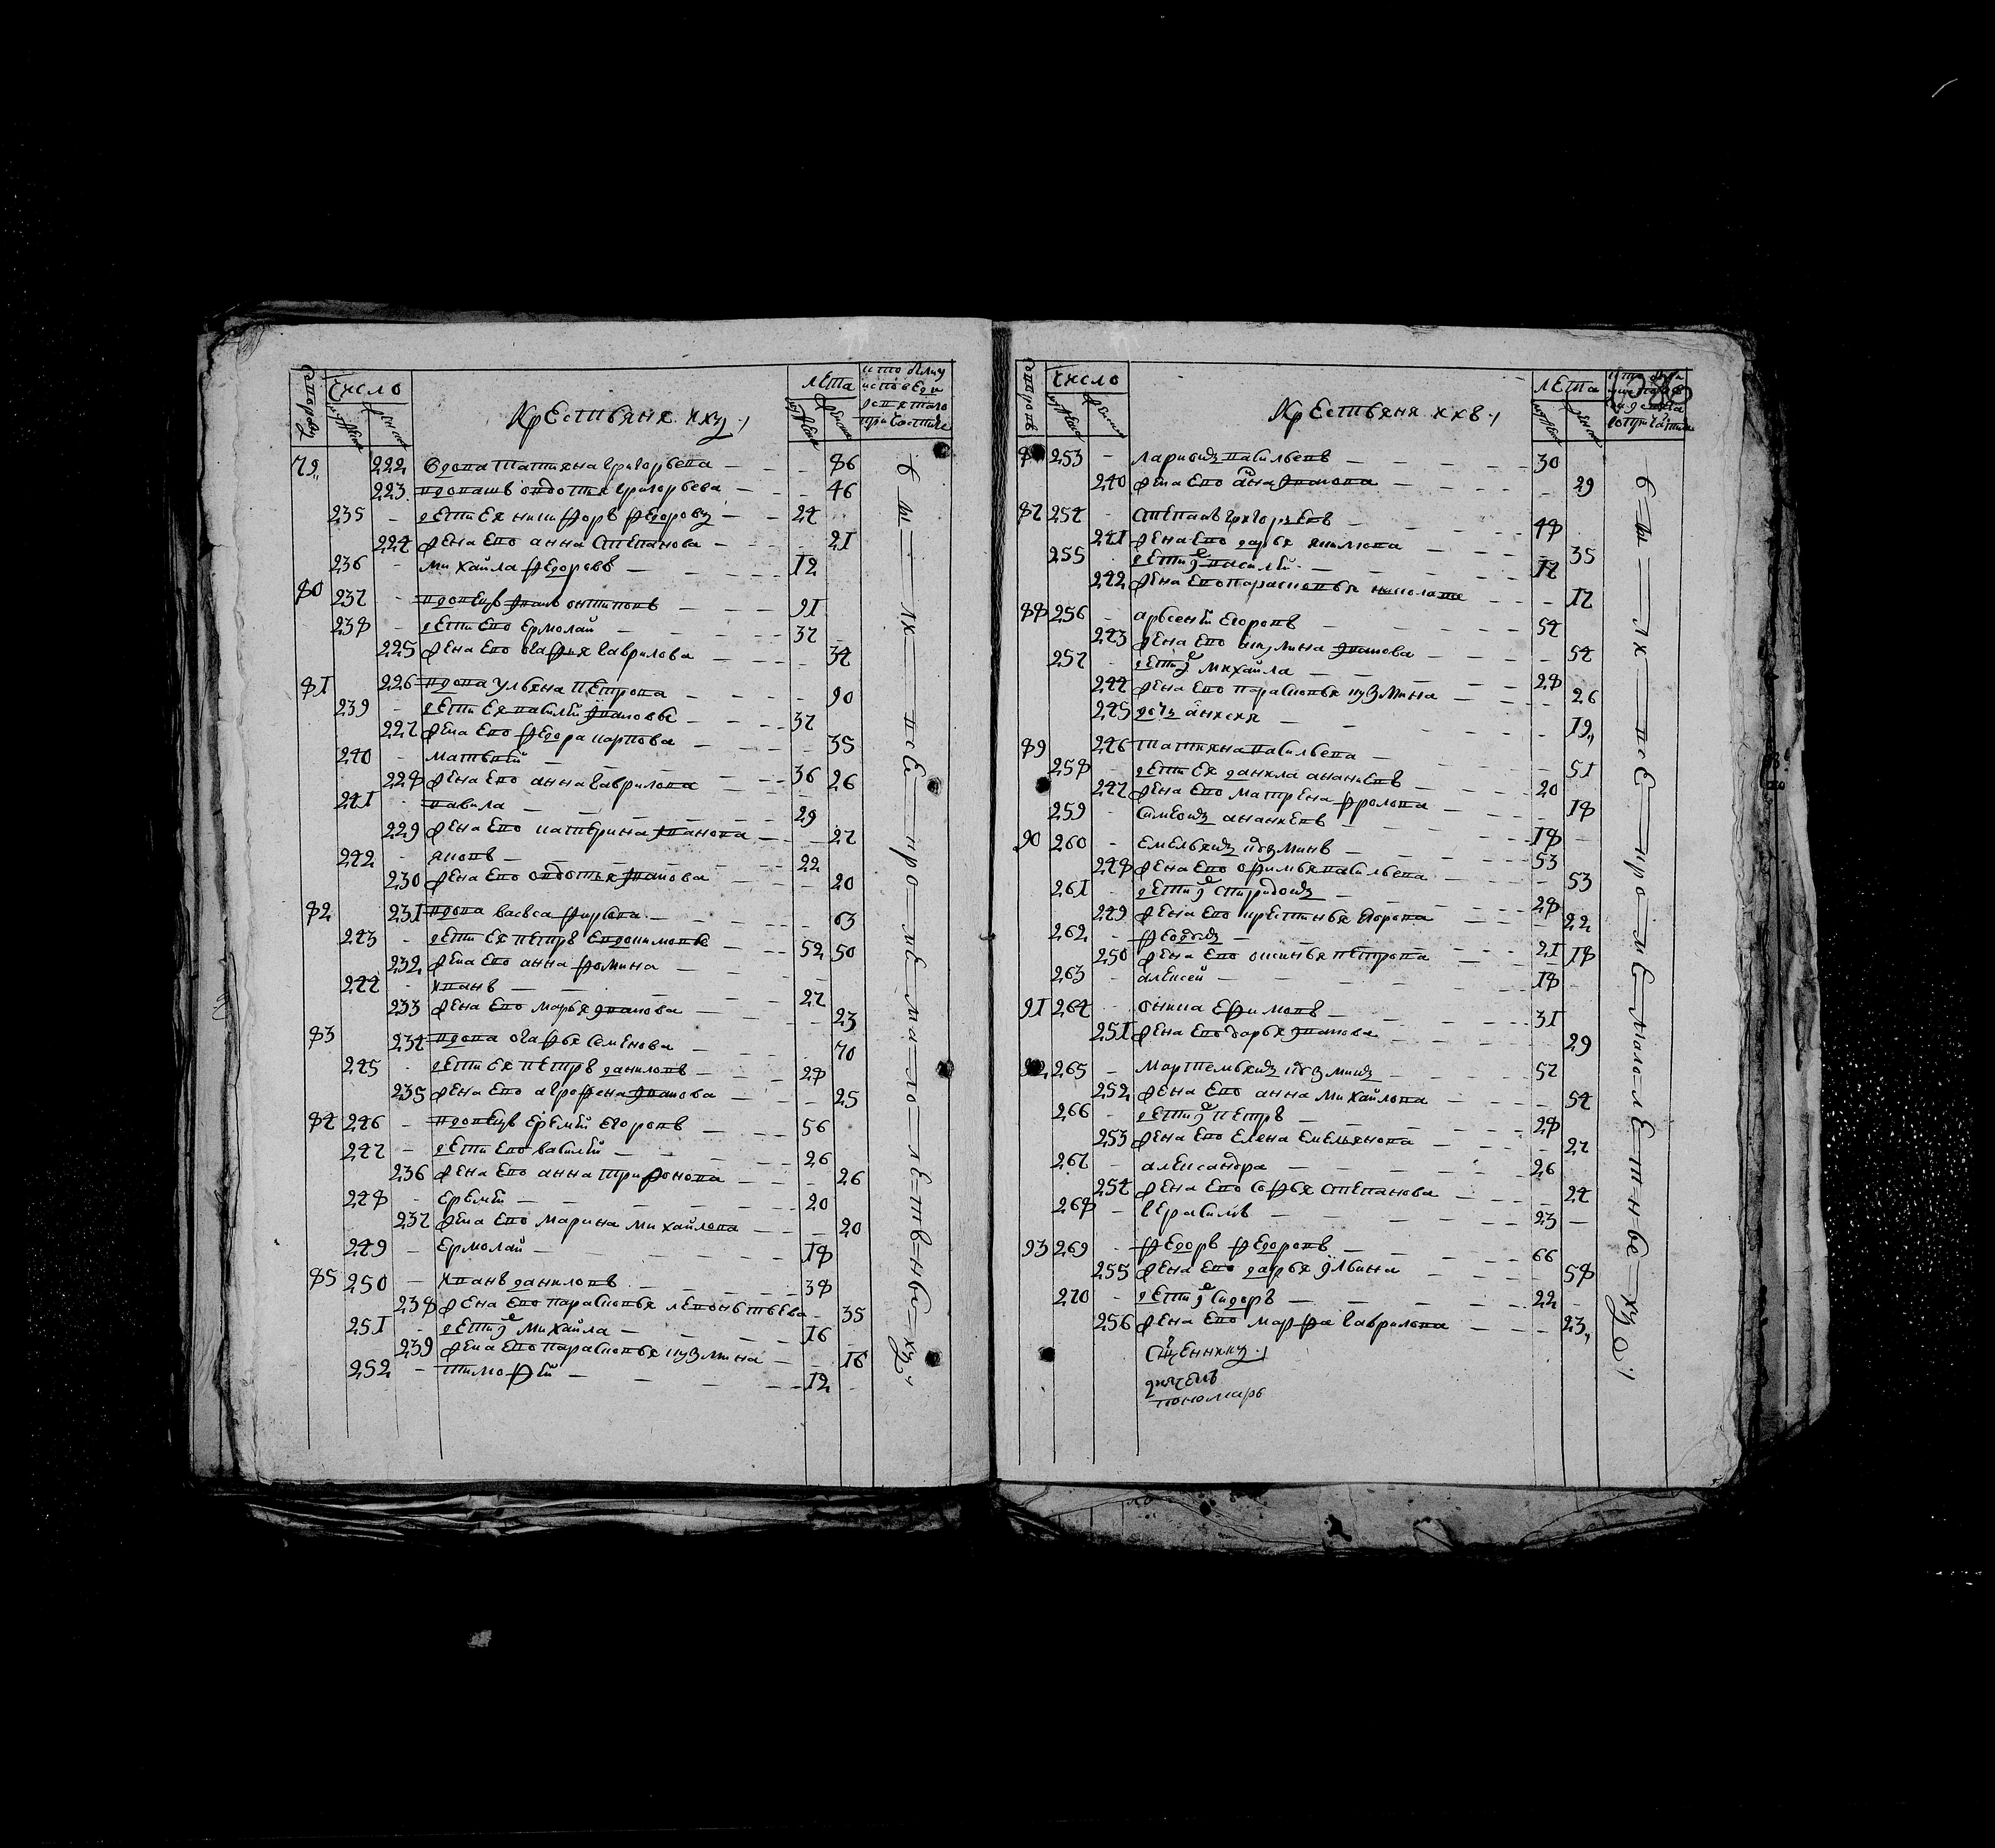 Число
лета
Крестьяня
79 222 вдова татияна григорьева 86
223 вдоваж овдотья григорьева 46
235 дети ея никифоръ федоровъ 24
224 жена ево анна степанова 21
236 михайла федоровъ 12
80 237 вдовецъ иванъ онтиповъ 91
238 дети ево ермолай 37
225 жена ево огафья гаврилова 34
81 226 вдова ульяна петрова 90
239 дети ея василѣй ивановы 37
227 жена ево федора карпова 35
240 матвѣй 36
228 жена ево анна гаврилова 26
241 вавила 29
229 жена ево катерина иванова 27
242 яковъ 22
230 жена ево овдотья иванова 20
82 231 вдова васьса фирсова 63
243 дети ея петръ евдокимовы 52
232 жена ево анна фомина 50
244 иванъ 27
233 жена ево марья иванова 23
83 234 вдова огафья семенова 70
245 дети ея петръ даниловъ 28
235 жена ево агрофена иванова 25
84 246 вдовецъ еремѣй егоровъ 56
247 дети ево василѣй 26
236 жена ево анна трифонова 26
248 еремѣй 20
237 жена ево марина михайлова 20
249 ермолай 18
85 250 иванъ даниловъ 38
238 жена ево парасковья левонтьева 35
251 дети михайла 16
239 жена ево парасковья кузмина 16
252 тимофѣй 12
Число
лета
Крестьяня
253 ларионъ васильевъ 30
240 жена ево анна иванова 29
87 254 степанъ григорьевъ 48
241 жена ево дарья якимова 35
255 дети василѣй 17
242 жена ево парасковья николаева 17
88 256 арсеней егоровъ 54
243 жена ево акулина иванова 54
257 дети михайла 28
244 жена ево парасковья кузмина 26
245 дочь анисия 19
89 246 татияна васильева 51
258 дети ея данила ананьевъ 20
247 жена ево матрена фролова 18
259 симеонъ ананьевъ 18
90 260 емельянъ кузминъ 53
248 жена ево офимья васильева 53
261 дети спиридонъ 28
249 жена ево крестинья егорова 22
262 феодоръ 21
250 жена ево оксинья петрова 18
263 алексей 18
91 264 оника ефимовъ 31
251 жена ево дарья иванова 29
92 265 мартемьянъ кузминъ 57
252 жена ево анна михайлова 54
266 дети петръ 28
253 жена ево елена емельянова 27
267 александра 26
254 жена ево софья степанова 24
268 герасимъ 23
93 269 федоръ федоровъ 66
255 жена ево дарья ильина 58
270 дети сидоръ 22
256 жена ево марфа гаврилова 23
пономарь